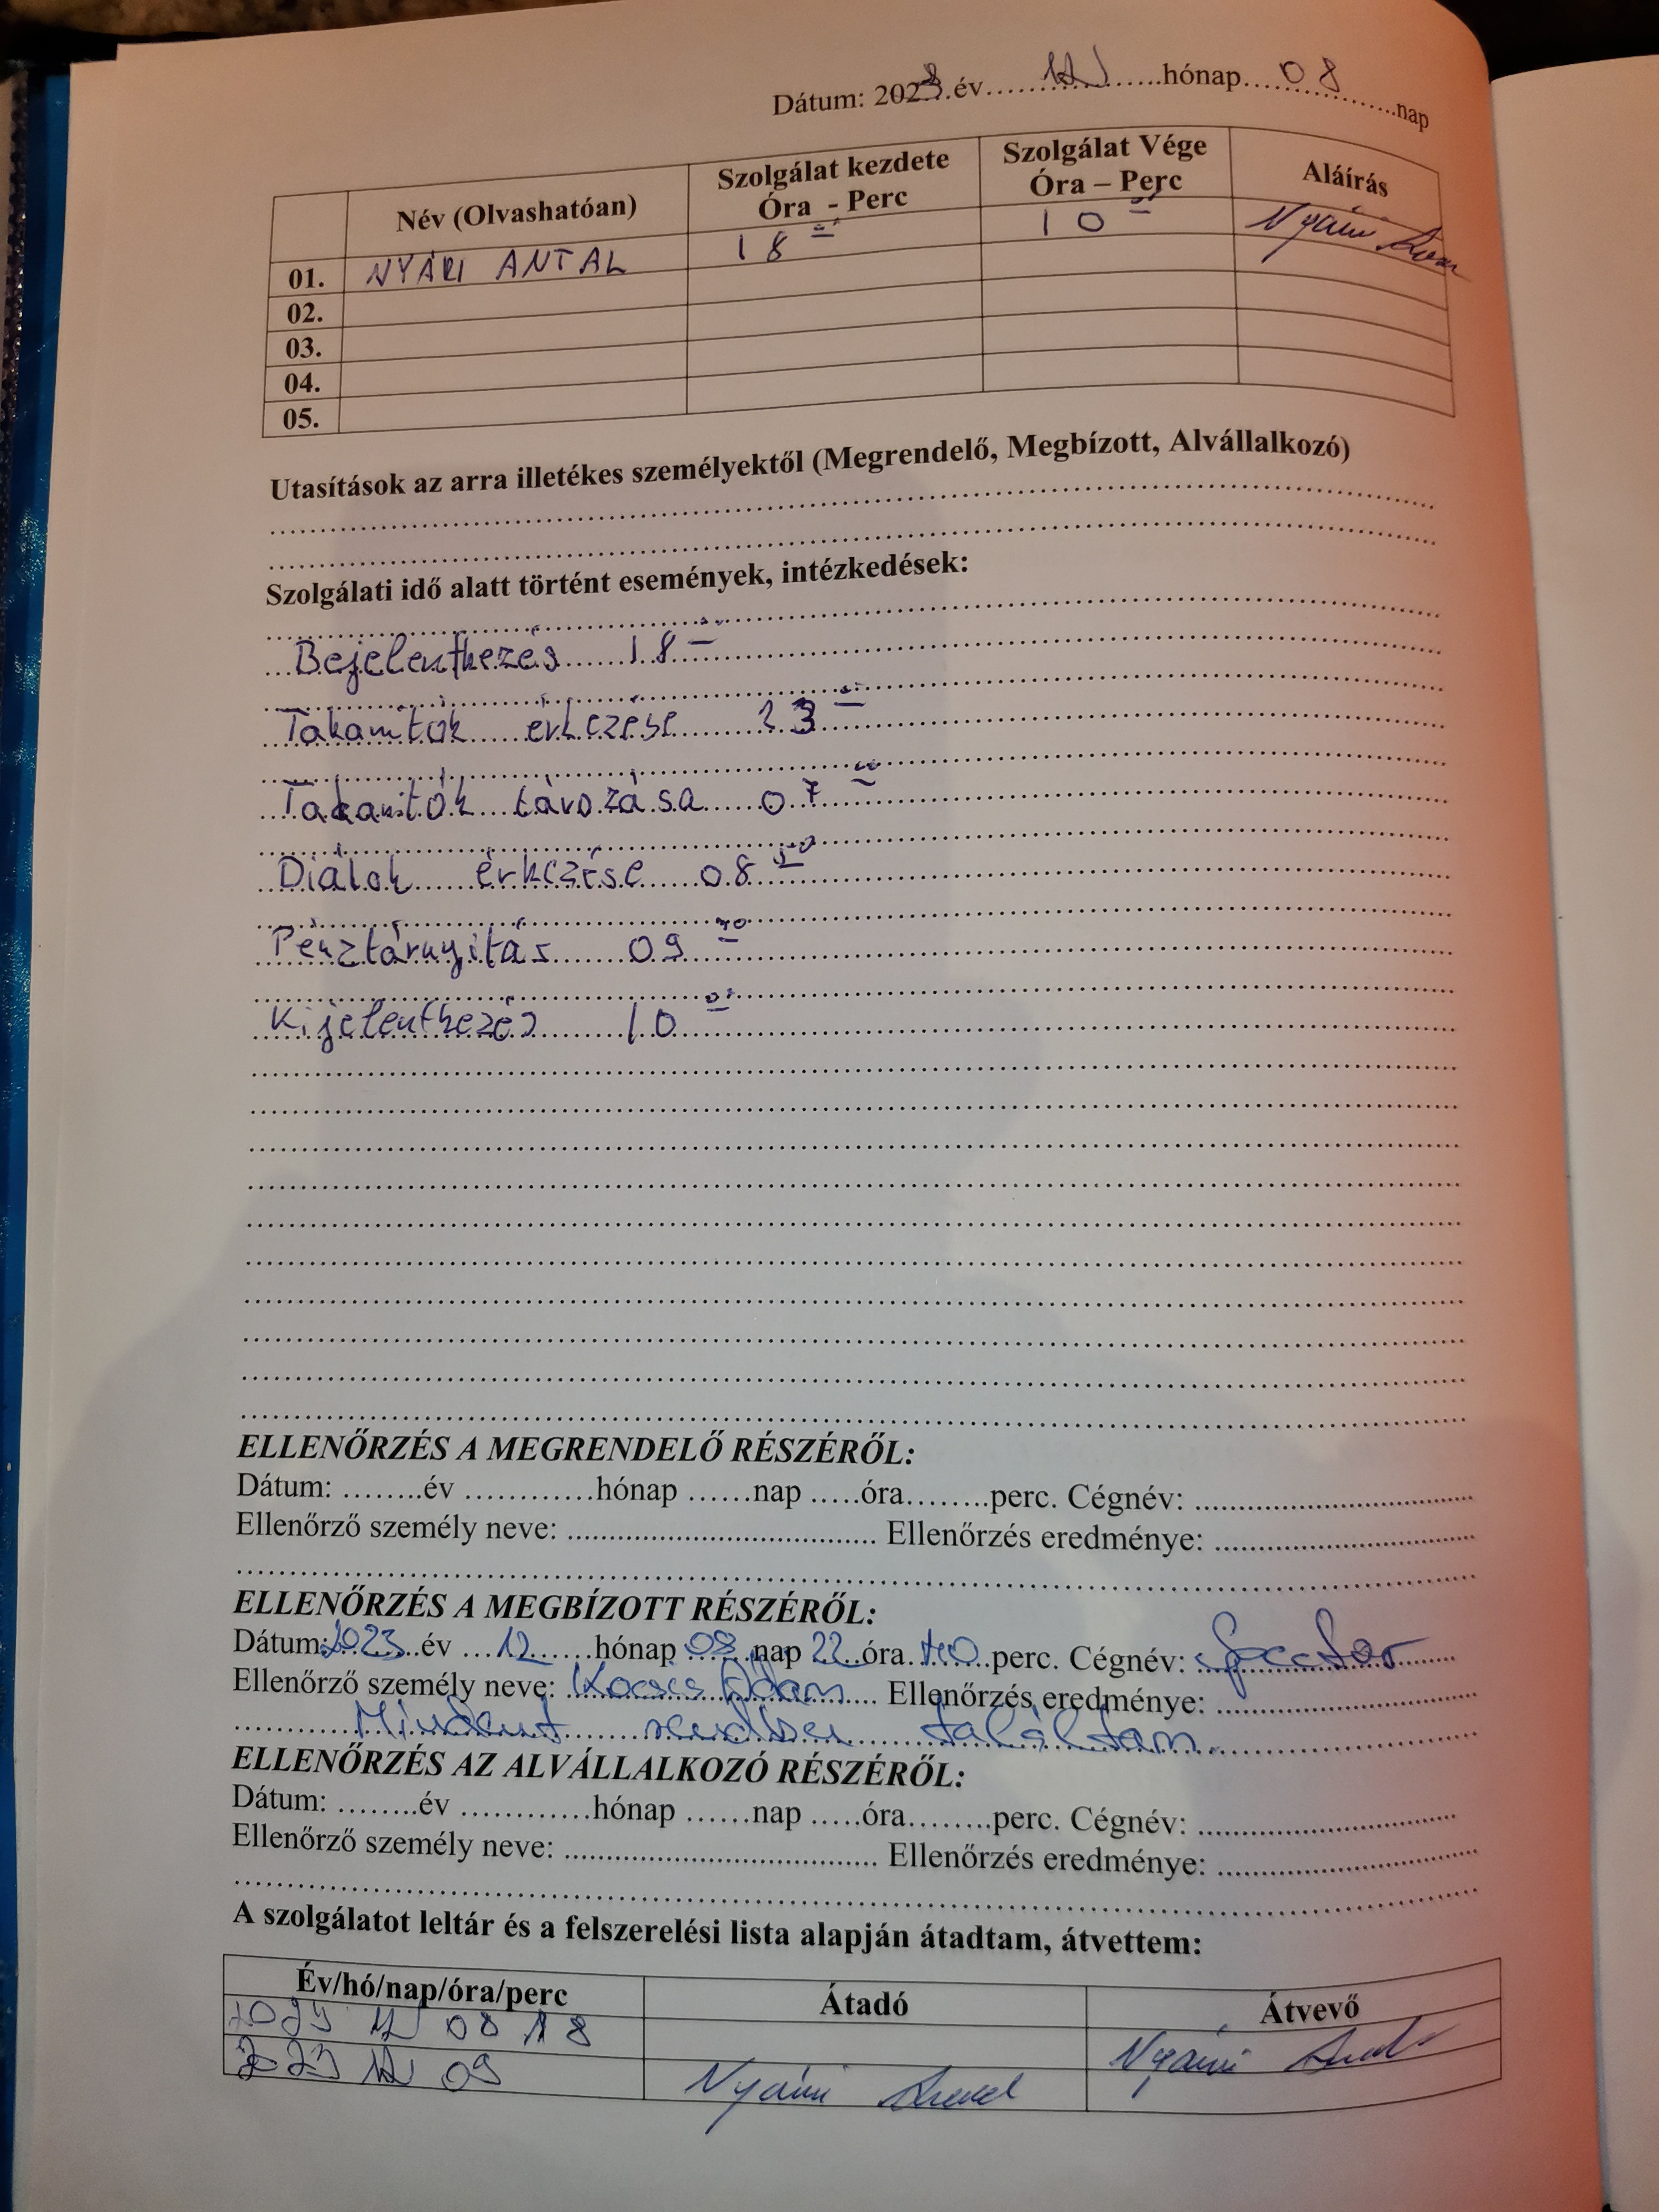 Dátum: 2023.év......12......hónap....08......nap
Név (Olvashatóan) Szolgálat kezdete Óra - Perc Szolgálat Vége Óra – Perc Aláírás
01. NYÁRI ANTAL 18 00 10 00 Nyári Antal
02.
03.
04.
05.
Utasítások az arra illetékes személyektől (Megrendelő, Megbízott, Alvállalkozó)
Szolgálati idő alatt történt események, intézkedések:
Bejelentkezés 18 00
Takarítók érkezése 23 00
Takarítók távozása 07 00
Diákok érkezése 08
Pénztárnyitás 09
Kijelentkezés 10 00
ELLENŐRZÉS A MEGRENDELŐ RÉSZÉRŐL:
Dátum: ........év ............hónap ......nap .....óra........perc. Cégnév: ..................................
Ellenőrző személy neve: ...................................... Ellenőrzés eredménye: ................................
ELLENŐRZÉS A MEGBÍZOTT RÉSZÉRŐL:
Dátum: 2023 év 12 hónap 08 nap 22 óra 40 perc. Cégnév:
Ellenőrző személy neve: Kocsis Ádám Ellenőrzés eredménye:
Mindent rendben találtam.
ELLENŐRZÉS AZ ALVÁLLALKOZÓ RÉSZÉRŐL:
Dátum: ........év ............hónap ......nap .....óra........perc. Cégnév: ................................
Ellenőrző személy neve: ...................................... Ellenőrzés eredménye: ................................
A szolgálatot leltár és a felszerelési lista alapján átadtam, átvettem:
Év/hó/nap/óra/perc Átadó Átvevő
2023 12 08 18 Nyári Antal
2023 12 09 Nyári Antal